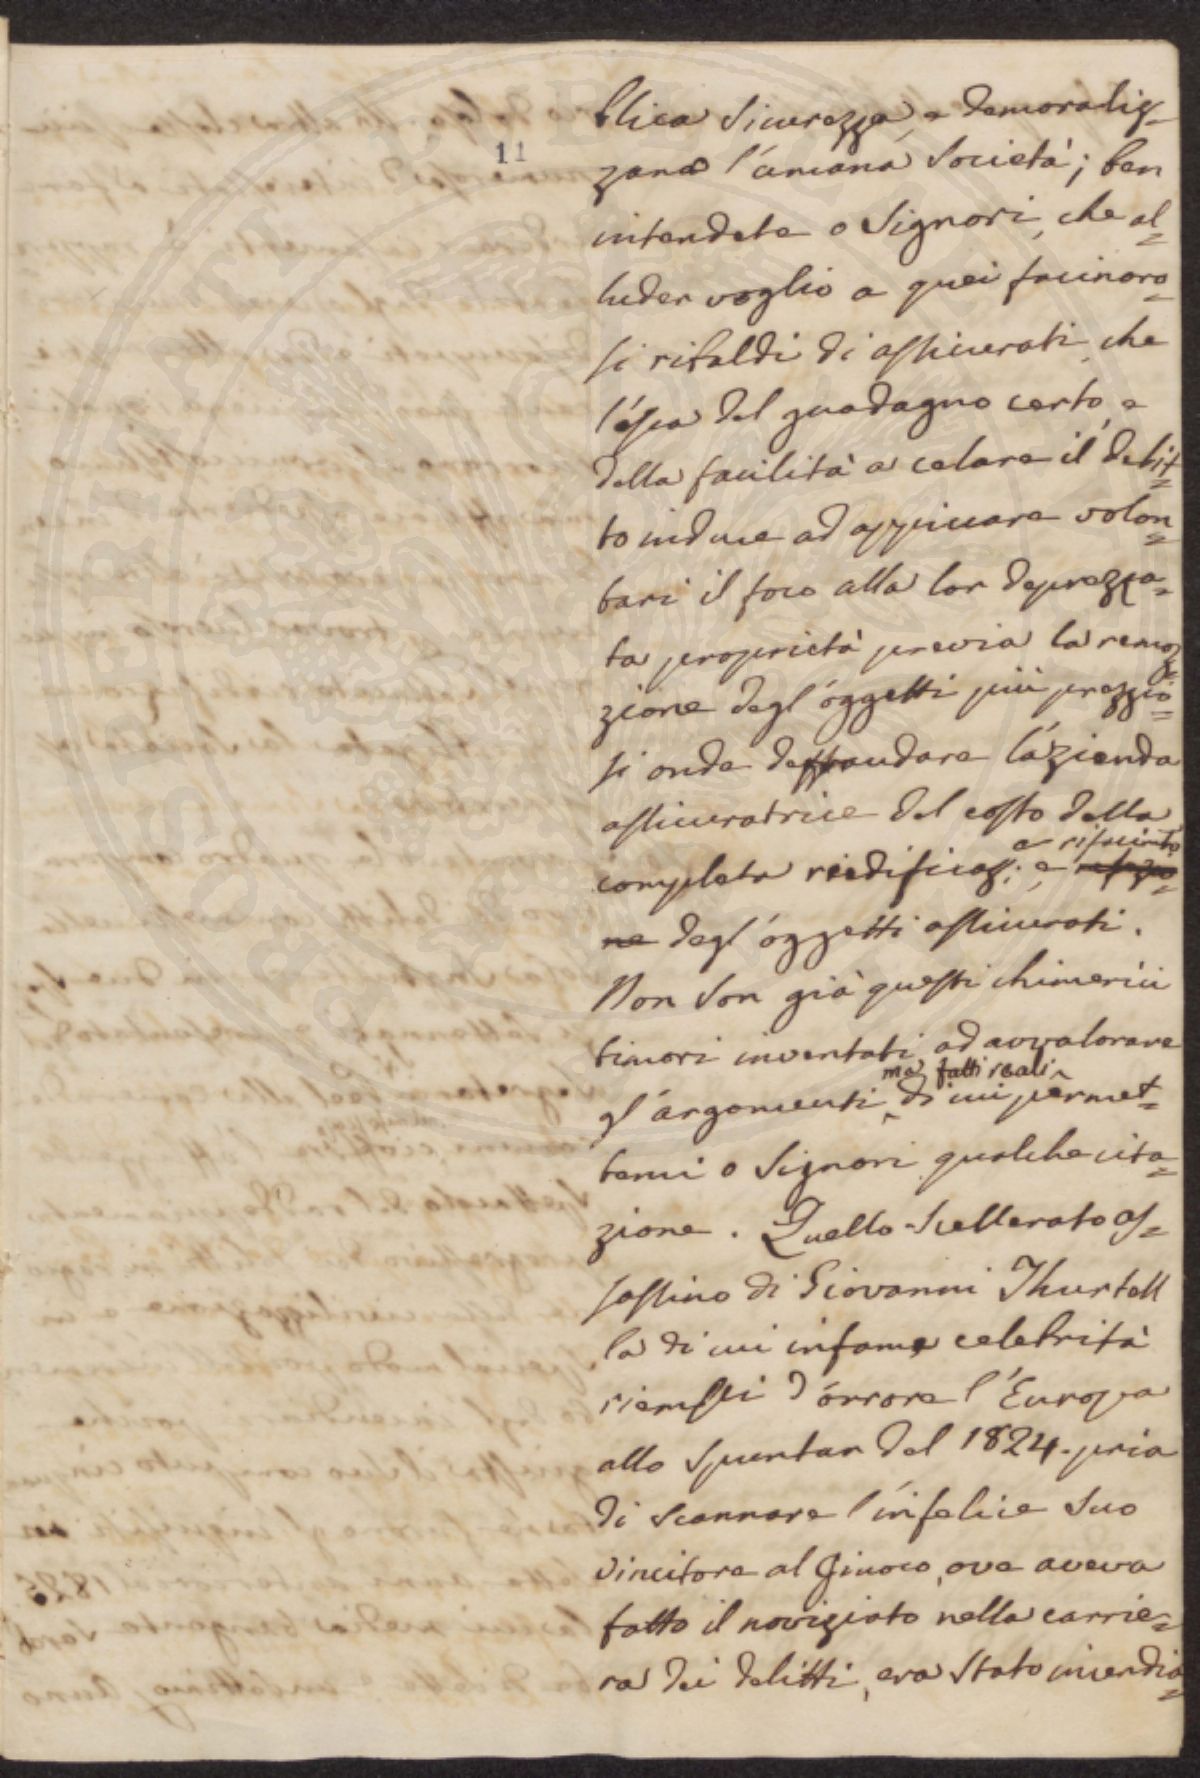 11
blica sicurezza, e demoraliz=
zano l'umana società; ben
intendete o Signori, che al=
luder voglio a quei facinoro=
si ribaldi di assicurati, che
l'esca del guadagno certo, e
della facilità a celare il delit=
to induce ad appiccare volon=
tari il foco alla lor deprezza=
ta proprietà previa la remoz=
zione degl'oggetti più prezzio=
si onde deffraudare l'azienda
assicuratrice del costo della
e rifacimto
completa riedificaz:, e refazio=
ne degl'oggetti assicurati.
Non son già questi chimerici
timori inventati ad avvalorare
ma fatti reali
gl'argomenti, di cui permet=
temi o Signori qualche cita=
zione. Quello scellerato as=
sassino di Giovanni Thurtell
la di cui infame celebrità
riempii d'orrore l'Europa
allo spuntar del 1824. pria
di scannare l'infelice suo
vincitore al Giuoco, ove aveva
fatto il novizziato nella carrie=
ra dei delitti, era stato incendia=
PROSPERITATI PUBLICAE